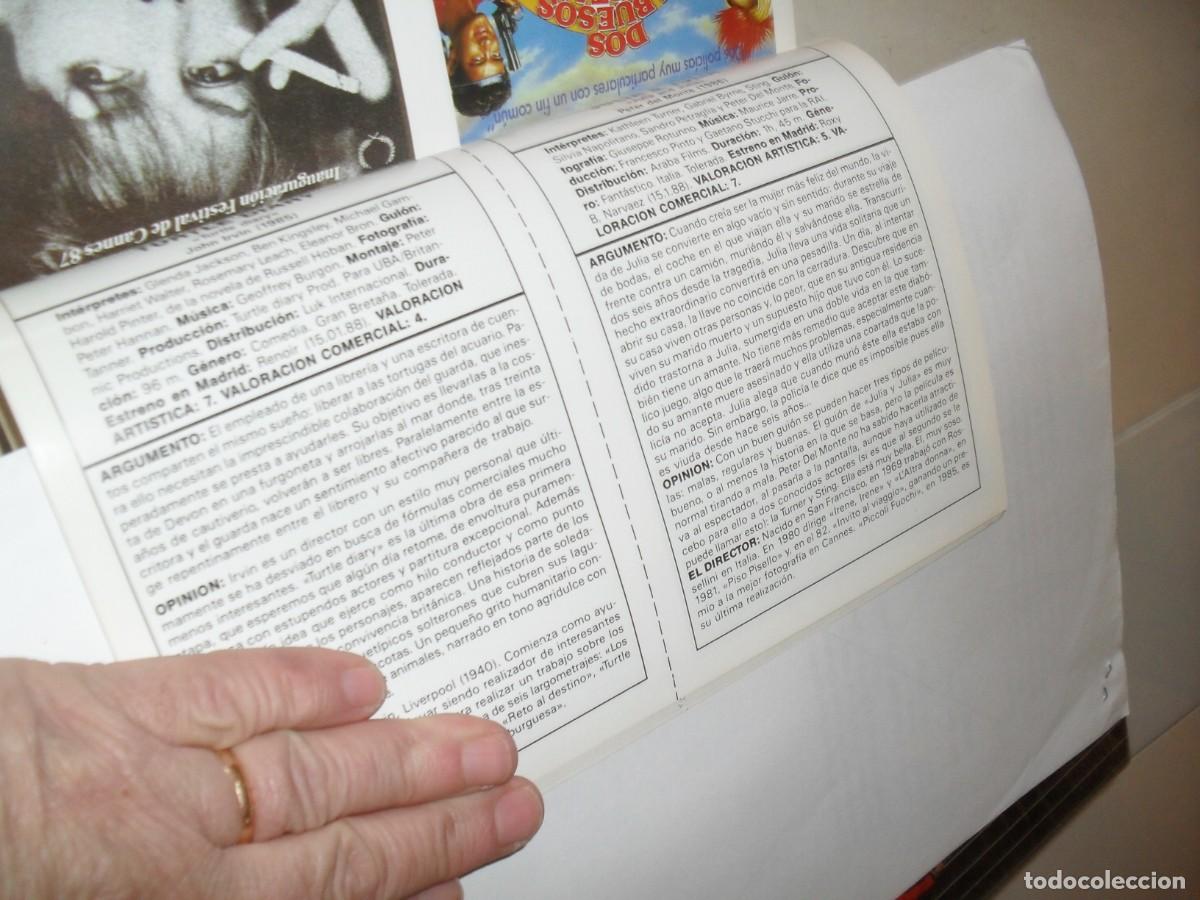 DOS
SABUESOS
policías muy particulares con un fin común"
Inauguración Festival de Cannes 87
John Irvin (1986)
Intérpretes: Glenda Jackson, Ben Kingsley, Michael Gam-
bon, Harriet Walter, Rosemary Leach, Eleanor Bron. Guión:
Harold Pinter, de la novela de Russell Hoban. Fotografía:
Peter Hannan. Música: Geoffrey Burgon. Montaje: Peter
Tanner. Producción: Turtle diary Prod. Para UBA/Britan-
nic Productions. Distribución: Luk Internacional. Dura-
ción: 96 m. Género: Comedia. Gran Bretaña. Tolerada.
Estreno en Madrid: Renoir (15.01.88). VALORACION
ARTISTICA: 7. VALORACION COMERCIAL: 4.
ARGUMENTO: El empleado de una librería y una escritora de cuen-
tos comparten el mismo sueño: liberar a las tortugas del acuario. Pa-
ra ello necesitan la imprescindible colaboración del guarda, que ines-
peradamente se presta a ayudarles. Su objetivo es llevarlas a la cos-
ta de Devon en una furgoneta y arrojarlas al mar donde, tras treinta
años de cautiverio, volverán a ser libres. Paralelamente entre la es-
critora y el guarda nace un sentimiento afectivo parecido al que sur-
ge repentinamente entre el librero y su compañera de trabajo.
OPINION: Irvin es un director con un estilo muy personal que últi-
mamente se ha desviado en busca de fórmulas comerciales mucho
menos interesantes. «Turtle diary» es la última obra de esa primera
etapa, que esperemos que algún día retome, de envoltura puramen-
con estupendos actores y partitura excepcional. Además
idea que ejerce como hilo conductor y como punto
los personajes, aparecen reflejados parte de los
convivencia británica. Una historia de soleda-
solterones que cubren sus lagu-
cotas. Un pequeño grito humanitario con-
animales, narrado en tono agridulce con
Liverpool (1940). Comienza como ayu-
siendo realizador de interesantes
realizar un trabajo sobre los
de seis largometrajes: «Los
«Reto al destino», «Turtle
burguesa».
Peter del Monte (1986)
Intérpretes: Kathleen Turner, Gabriel Byrne, Sting. Guión:
Silvia Napolitano, Sandro Petraglia y Peter Del Monte. Fo-
tografía: Giuseppe Rotunno. Música: Maurice Jarre. Pro-
ducción: Francesco Pinto y Gaetano Stucchi para la RAI.
Distribución: Araba Films. Duración: 1h. 45 m. Géne-
ro: Fantástico. Italia. Tolerada. Estreno en Madrid: Roxy
B, Narvaez (15.1.88). VALORACION ARTISTICA: 5. VA-
LORACION COMERCIAL: 7.
ARGUMENTO: Cuando creía ser la mujer más feliz del mundo, la vi-
da de Julia se convierte en algo vacío y sin sentido: durante su viaje
de bodas, el coche en el que viajan ella y su marido se estrella de
frente contra un camión, muriendo él y salvándose ella. Transcurri-
dos seis años desde la tragedia, Julia lleva una vida solitaria que un
hecho extraordinario convertirá en una pesadilla. Un día, al intentar
abrir su casa, la llave no coincide con la cerradura. Descubre que en
su casa viven otras personas y, lo peor, que en su antigua residencia
viven su marido muerto y un supuesto hijo que tuvo con él. Lo suce-
dido trastorna a Julia, sumergida en una doble vida en la que tam-
bién tiene un amante. No tiene más remedio que aceptar este diabó-
lico juego, algo que le traerá muchos problemas, especialmente cuan-
do su amante muere asesinado y ella utiliza una coartada que la po-
licía no acepta. Julia alega que cuando murió éste ella estaba con
su marido. Sin embargo, la policía le dice que es imposible pues ella
es viuda desde hace seis años...
OPINION: Con un buen guión se pueden hacer tres tipos de pelícu-
las: malas, regulares y buenas. El guión de «Julia y Julia» es muy
bueno, o al menos la historia en la que se basa, pero la película es
normal tirando a mala. Peter Del Monte no ha sabido hacerla atracti-
va al espectador, al pasarla a la pantalla, aunque haya utilizado de
cebo para ello a dos conocidos actores (si es que al segundo se le
puede llamar esto): la Turner y Sting. Ella está muy bella. El, muy soso.
EL DIRECTOR: Nacido en San Francisco, en 1969 trabajó con Ros-
sellini en Italia. En 1980 dirige «Irene, Irene» y «L'Altra donna», en
1981, «Piso Pisello» y, en el 82, «Invito al viaggio», ganando un pre-
mio a la mejor fotografía en Cannes. «Piccoli Fuochi», en 1985, es
su última realización.
todocoleccion